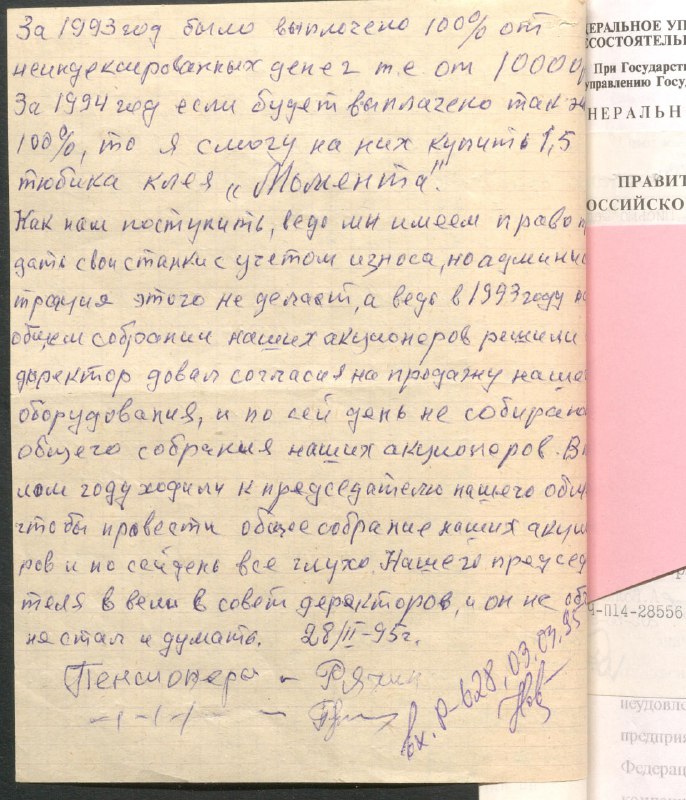 За 1993 год было выплочено 100% от
неиндексированных денег т.е от 10000
За 1994 год если будет выплачено так
100%, то я смогу на них купить 1,5
тюбика клея „Момента".
Как нам поступить, ведь мы имеем право
дать свои станки с учетом износа, но админис
трация этого не делает, а ведь в 1993 году на
общем собрании наших акционеров решили
деректор довал согласия на продажу нашего
оборудования, и по сей день не собирано
общего собрания наших акционеров. В
лом году ходили к председателю нашего
чтобы провести общее собрание наших акци
ров и по сей день все глухо. Нашего председ
теля в вели в совет деректоров, и он не
на стал и думать. 28/II-95г.
Пенсионеры - Рячин
вх. Р-628, 03.03.95
ЕРАЛЬНОЕ УП
ЕСОСТОЯТЕЛЬ
При Государст
управлению Госу
НЕРАЛЬН
ПРАВИТ
ОССИЙСКО
Р
9-П14-28556
неудовле
предприя
Федерац
компани